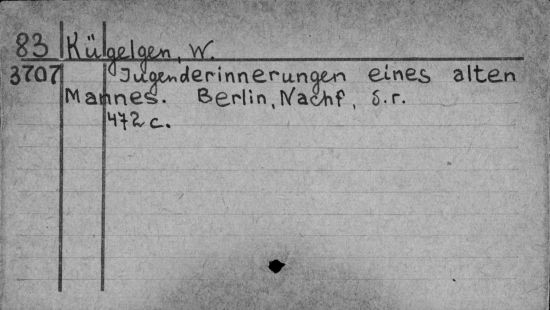 83 Kügelgen, W.
3707 Jugenderinnerungen eines alten
Mannes. Berlin, Nachf, s.r.
472 c.